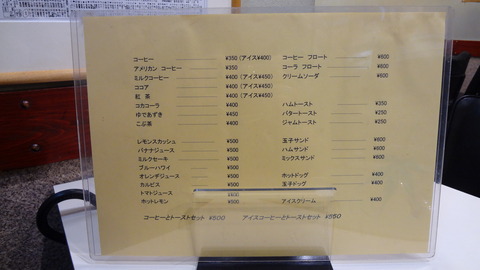 コーヒー ¥350 (アイス¥400)
アメリカン コーヒー ¥350
ミルクコーヒー ¥400 (アイス¥450)
ココア ¥400 (アイス¥450)
紅 茶 ¥400 (アイス¥450)
コカコーラ ¥400
ゆであずき ¥450
こぶ茶 ¥400
レモンスカッシュ ¥500
バナナジュース ¥500
ミルクセーキ ¥500
ブルーハワイ ¥500
オレンヂジュース ¥500
カルピス ¥500
トマトジュース
ホットレモン ¥500
コーヒー フロート ¥600
コーラ フロート ¥600
クリームソーダ ¥600
ハムトースト ¥350
バタートースト ¥250
ジャムトースト ¥250
玉子サンド ¥600
ハムサンド ¥600
ミックスサンド ¥600
ホットドッグ ¥400
玉子ドッグ ¥400
アイスクリーム ¥400
コーヒーとトーストセット ¥500 アイスコーヒーとトーストセット ¥550